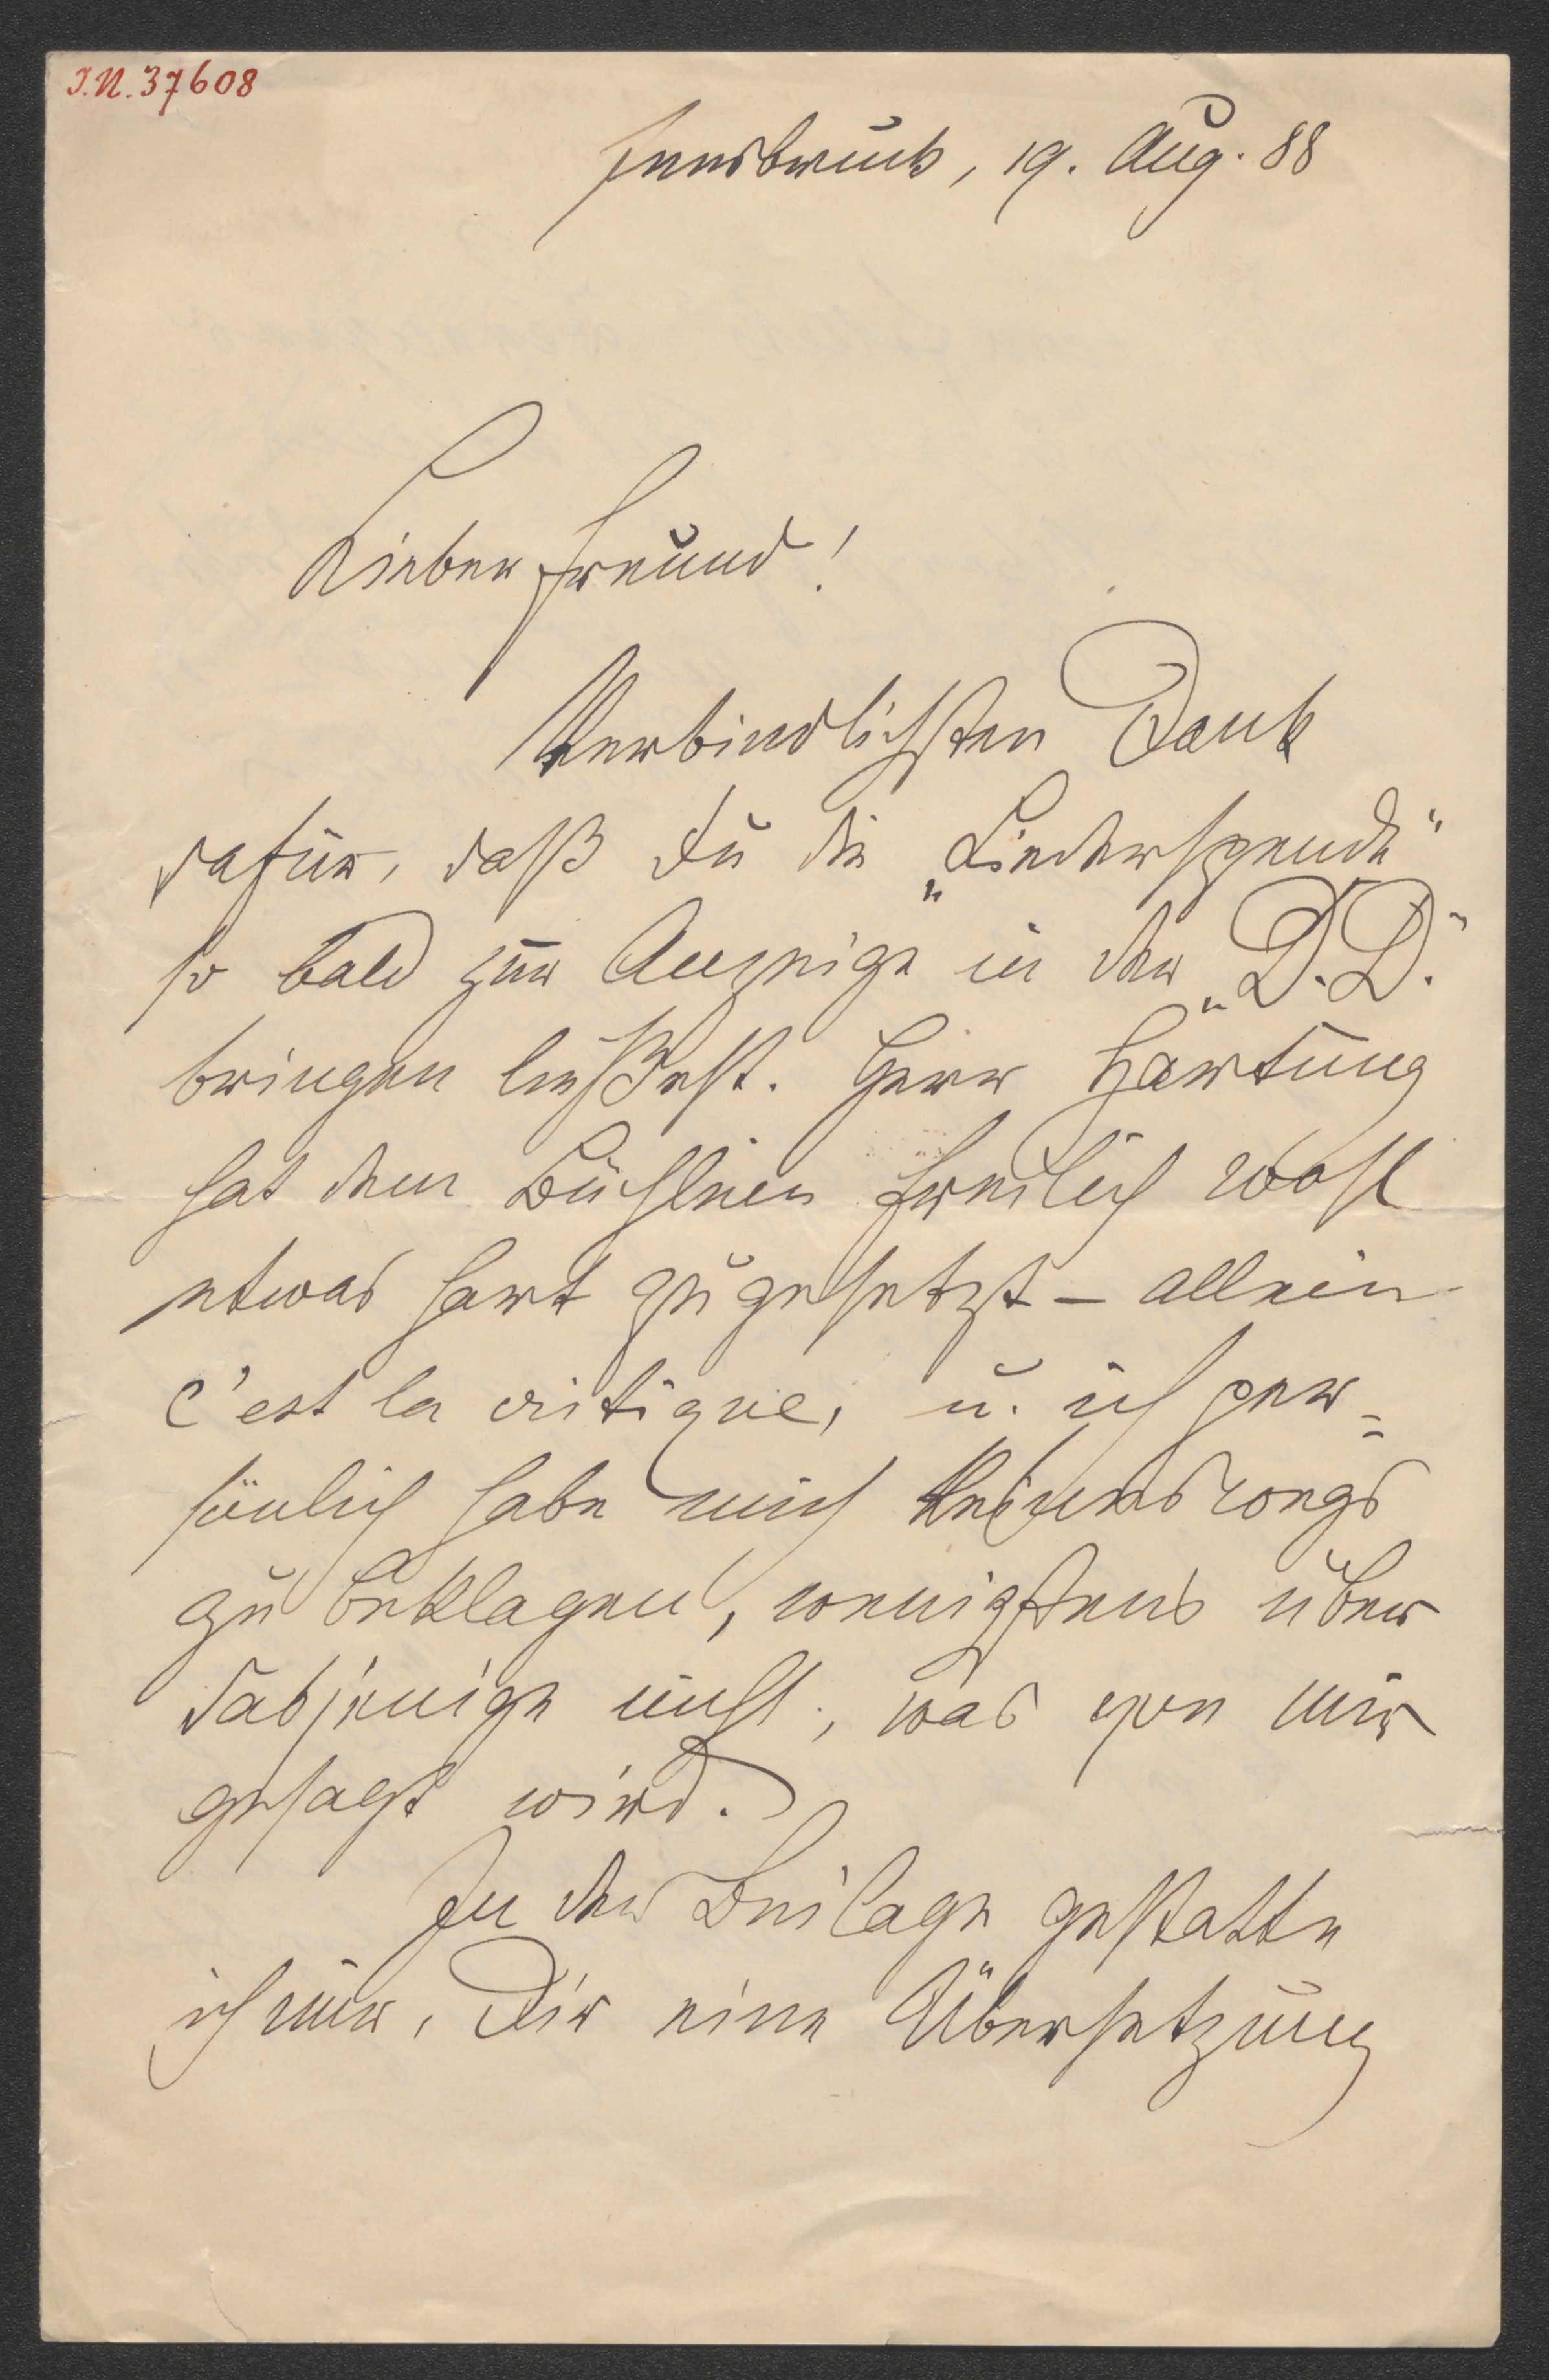 I.N. 37608
Innsbruck, 19. Aug. 88
Lieber Freund!
Verbindlichsten Dank
dafür, daß Du die „Liederspende“
so bald zur Anzeige in der „D. D.“
bringen ließest. Herr Hartung
hat dem Büchlein freilich wohl
etwas hart zugesetzt – allein
c'est la critique, u. ich per=
sönlich habe mich keineswegs
zu beklagen, wenigstens über
dasjenige nicht, was von mir
gesagt wird.
In der Beilage gestatte
ich mir, Dir eine Übersetzung